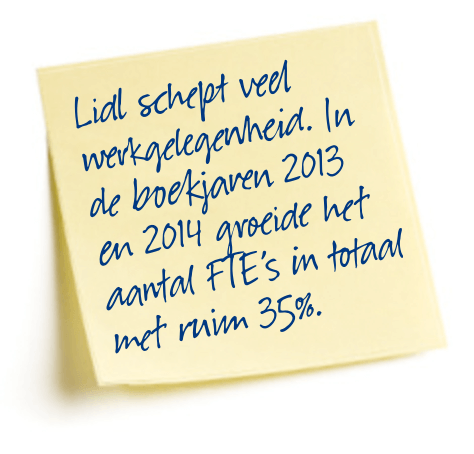 Lidl schept veel
werkgelegenheid. In
de boekjaren 2013
en 2014 groeide het
aantal FTE's in totaal
met ruim 35%.